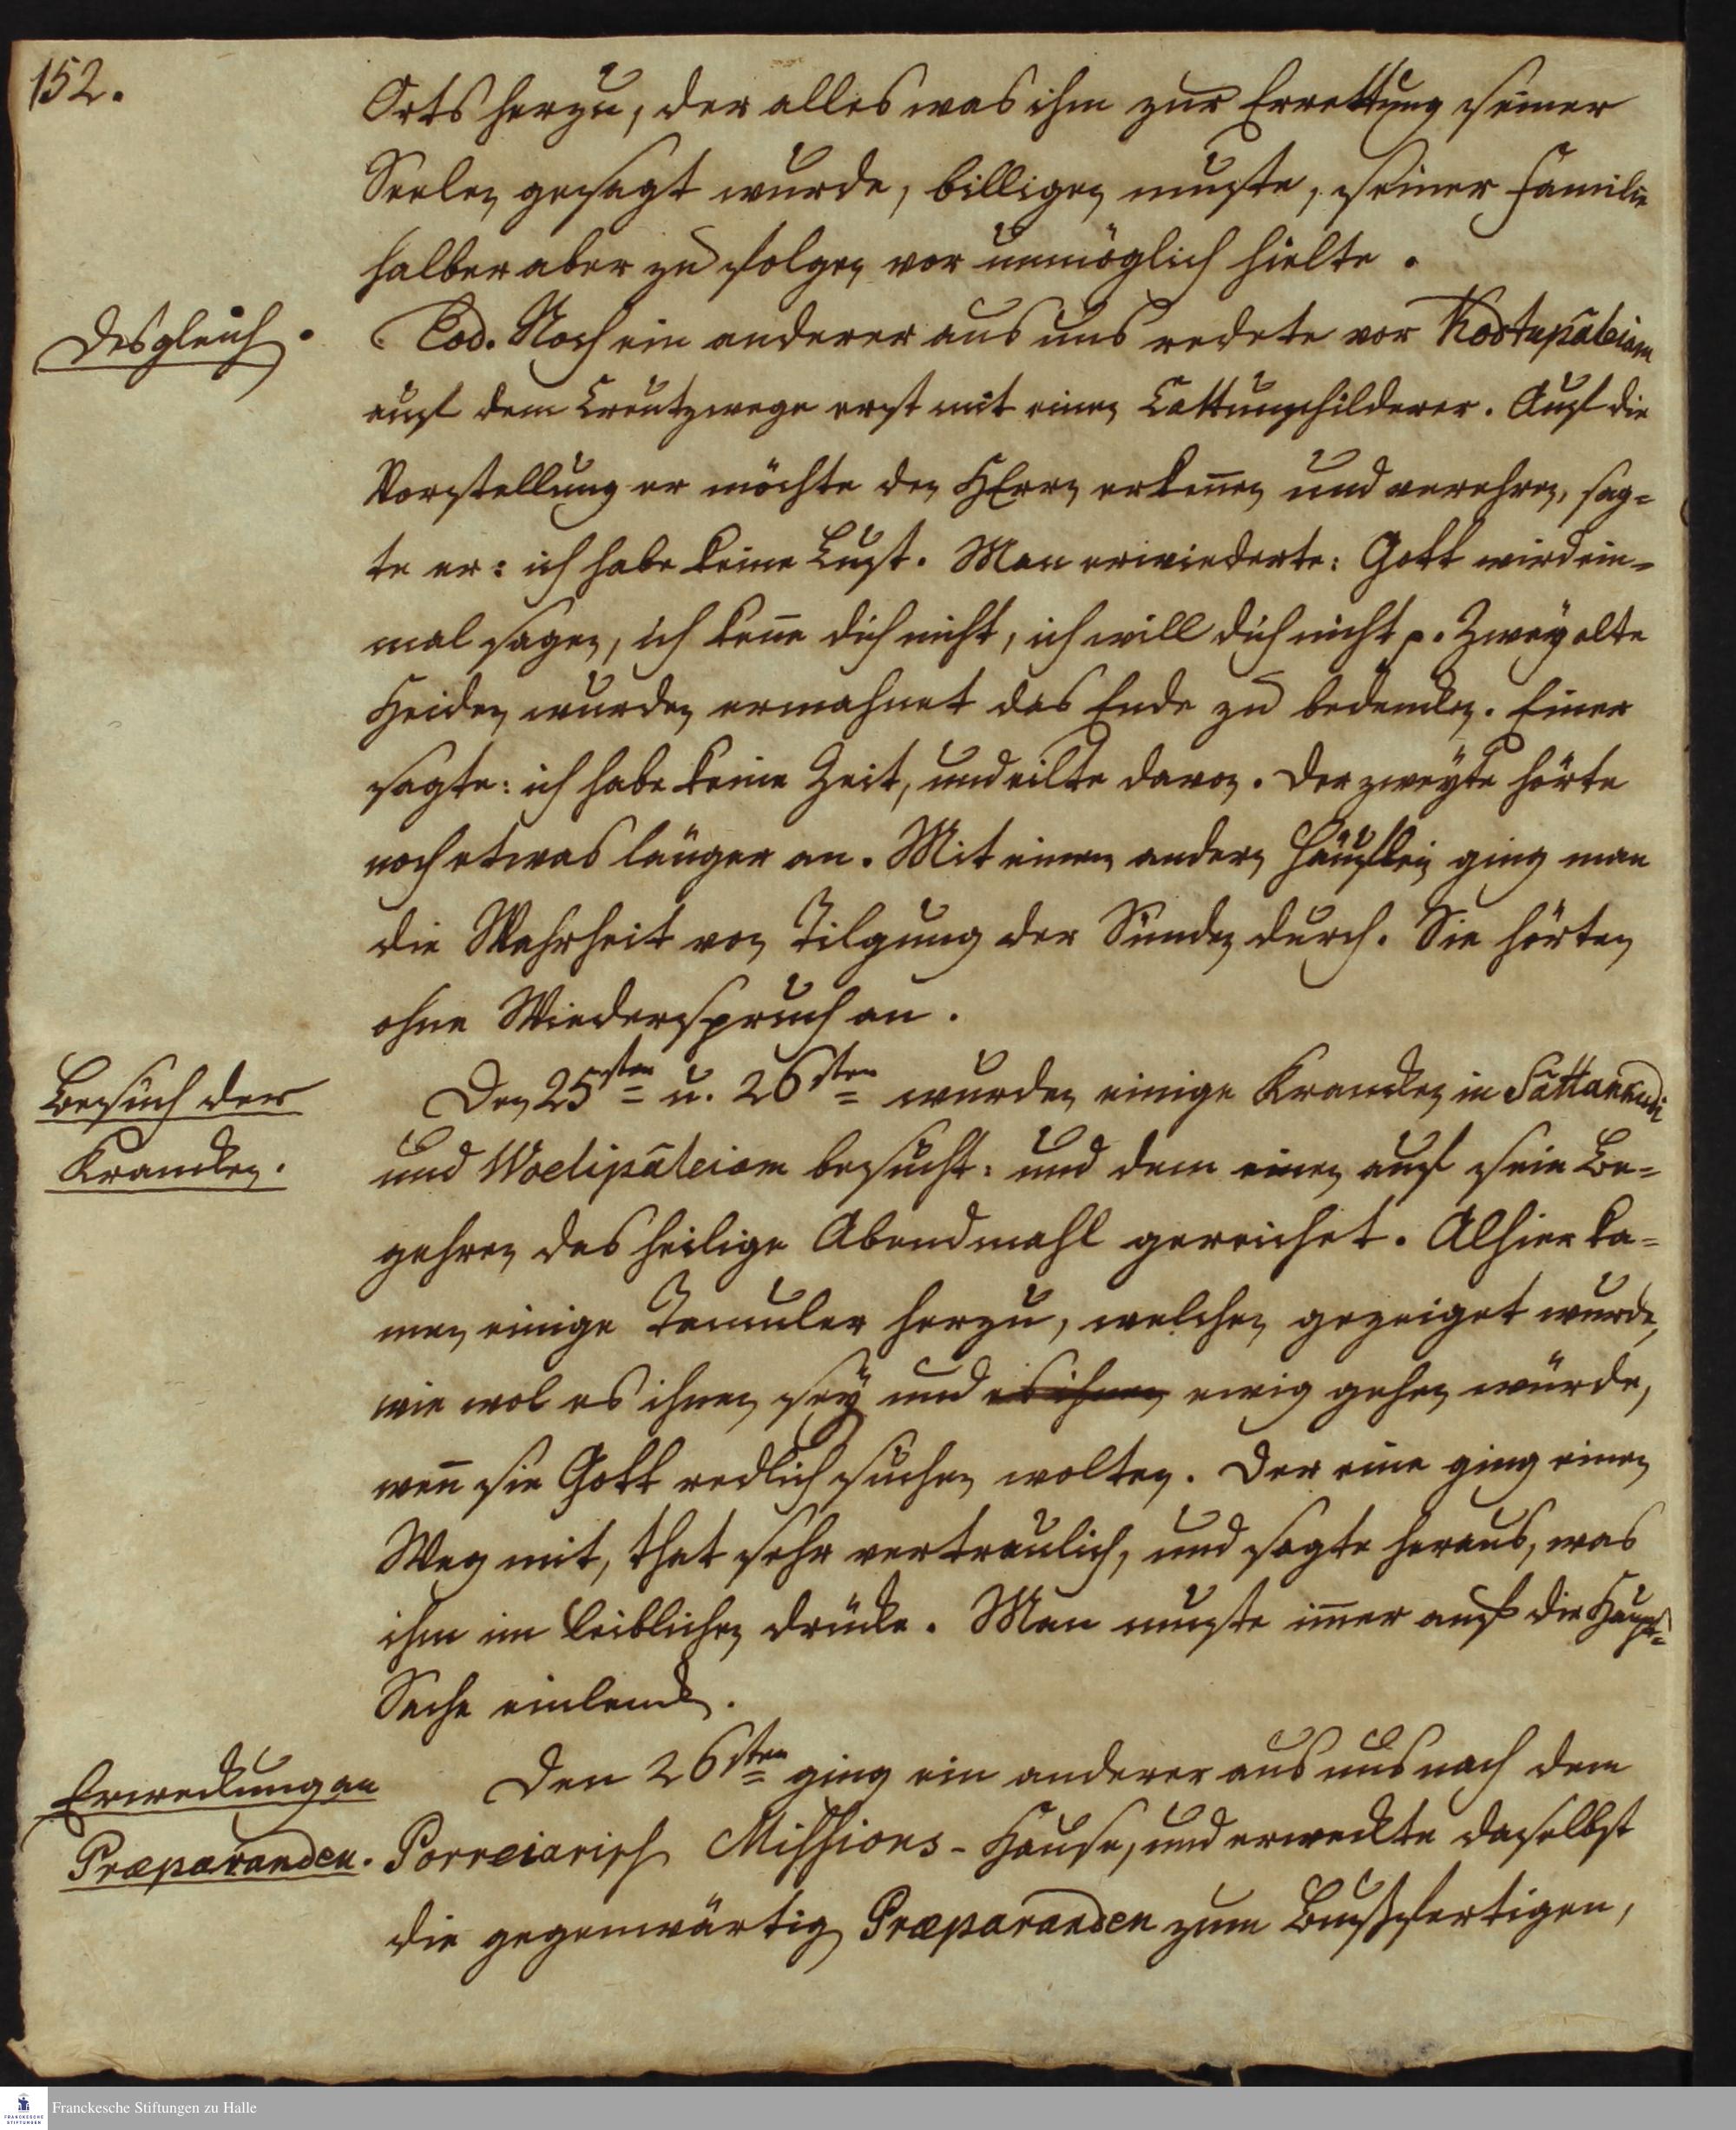 152.
Orts herzu, der alles was ihm zur Errettung seiner
Seelen gesagt wurde, billigen muste, seiner Familie
halber aber zu folgen vor unmöglich hielte.
Desgleich.
Eod. Noch ein anderer aus uns redete vor
auf dem Creutzwege erst mit einen Cattunschilderer. Auf die
Vorstellung er möchte den HErrn erkeñen und verehren, sag=
te er: ich habe keine Lust. Man erwiederte: Gott wird ein=
mal sagen, ich keñe dich nicht, ich will dich nicht p. Zwey alte
Heiden wurden ermahnet das Ende zu bedencken. Einer
sagte: ich habe keine Zeit, und eilte davon. Der zweyte hörte
noch etwas länger an. Mit einem andern Häuflein ging man
die Wahrheit von Tilgung der Sünden durch. Sie hörten
ohne Wiederspruch an.
Besuch der
Krancken.
Den 25sten u. 26sten wurden einige Krancken in Sâttankudi
und Woelipâleiam besucht: und dem einen auf sein Be=
gehren das heilige Abendmahl gereichet. Alhier ka=
men einige Tamuler herzu, welchen gezeiget wurde,
wie wol es ihnen sey und es ihnen ewig gehen würde,
weñ sie Gott redlich suchen wolten. Der eine ging einen
Weg mit, that sehr vertraulich, und sagte heraus, was
ihm im leiblichen drücke. Man muste iñer auf die Haupt=
Sache einlencken.
Erweckung an
Præparanden.
Den 26sten ging ein anderer aus uns nach dem
Porreiarisch Missions-Hause, und erweckte daselbst
die gegenwärtig Præparanden zum Bußfertigen,
Franckesche Stiftungen zu Halle
FRANCKESCHE
STIFTUNGEN